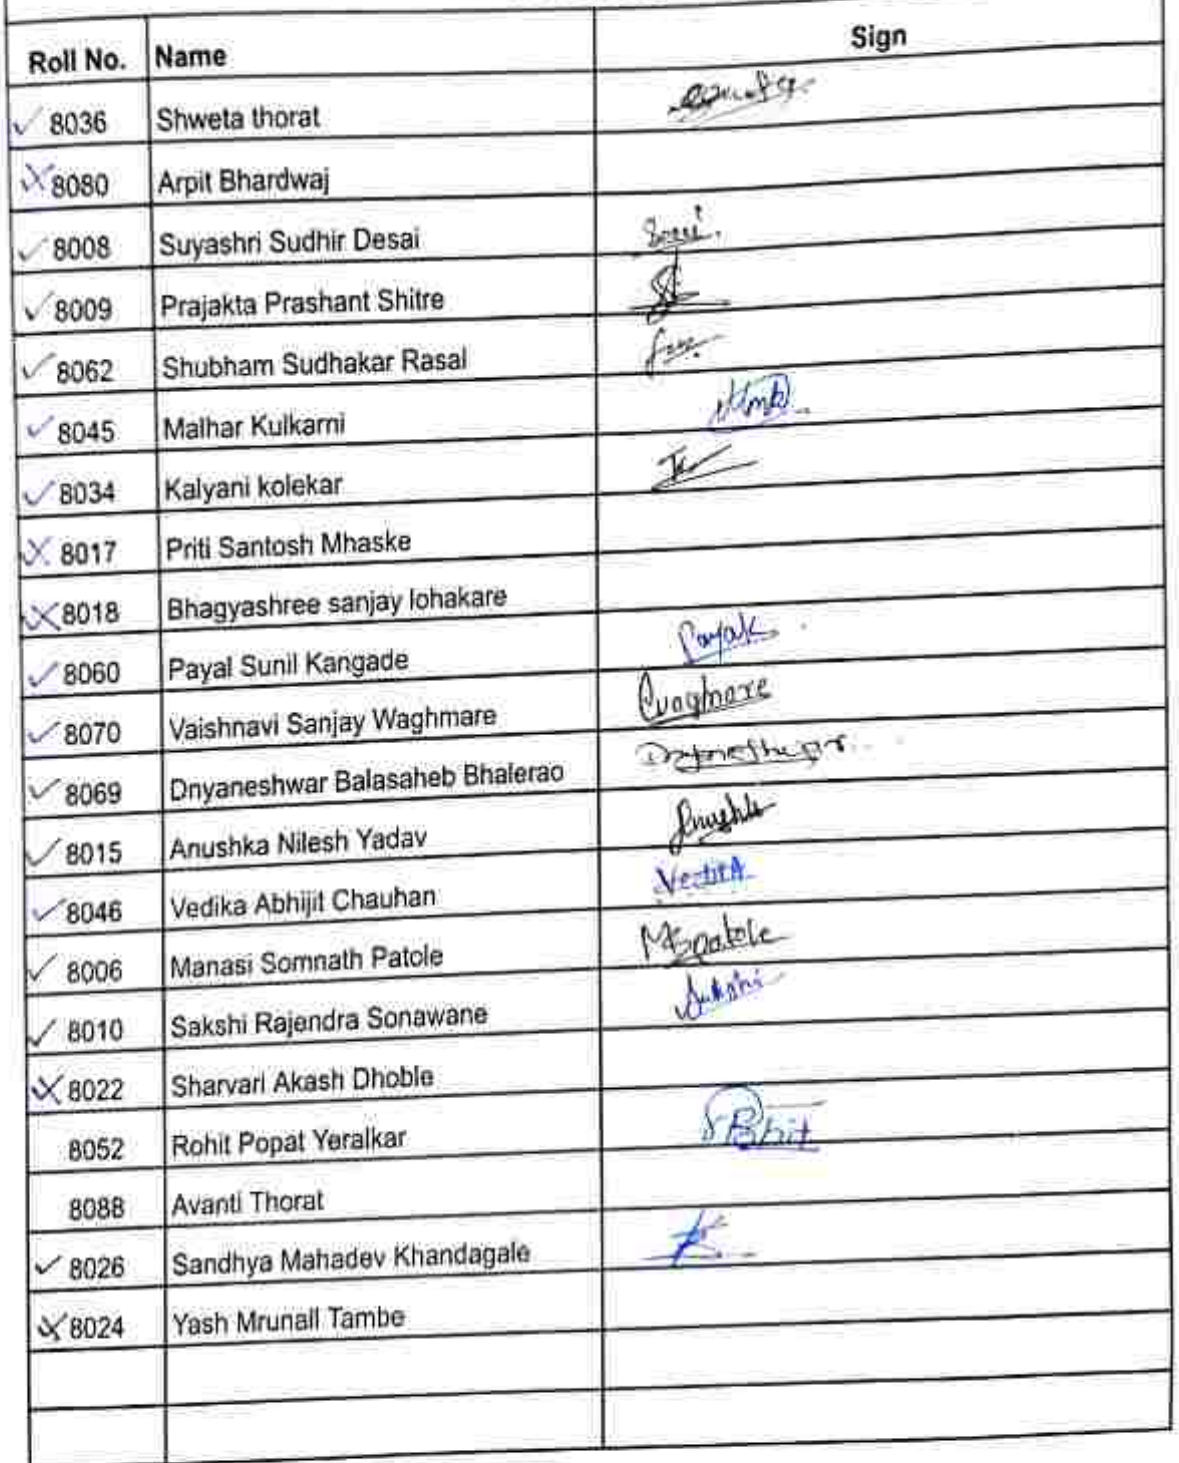 Roll No. Name Sign
8036 Shweta thorat
8080 Arpit Bhardwaj
8008 Suyashri Sudhir Desai
8009 Prajakta Prashant Shitre
8062 Shubham Sudhakar Rasal
8045 Malhar Kulkarni
8034 Kalyani kolekar
8017 Priti Santosh Mhaske
8018 Bhagyashree sanjay lohakare
8060 Payal Sunil Kangade Payal
8070 Vaishnavi Sanjay Waghmare Vwaghmare
8069 Dnyaneshwar Balasaheb Bhalerao Dnyaneshwar
8015 Anushka Nilesh Yadav
8046 Vedika Abhijit Chauhan Vedika
8006 Manasi Somnath Patole MSpatole
8010 Sakshi Rajendra Sonawane Sakshi
8022 Sharvari Akash Dhoble
8052 Rohit Popat Yeralkar Rohit
8088 Avanti Thorat
8026 Sandhya Mahadev Khandagale
8024 Yash Mrunall Tambe